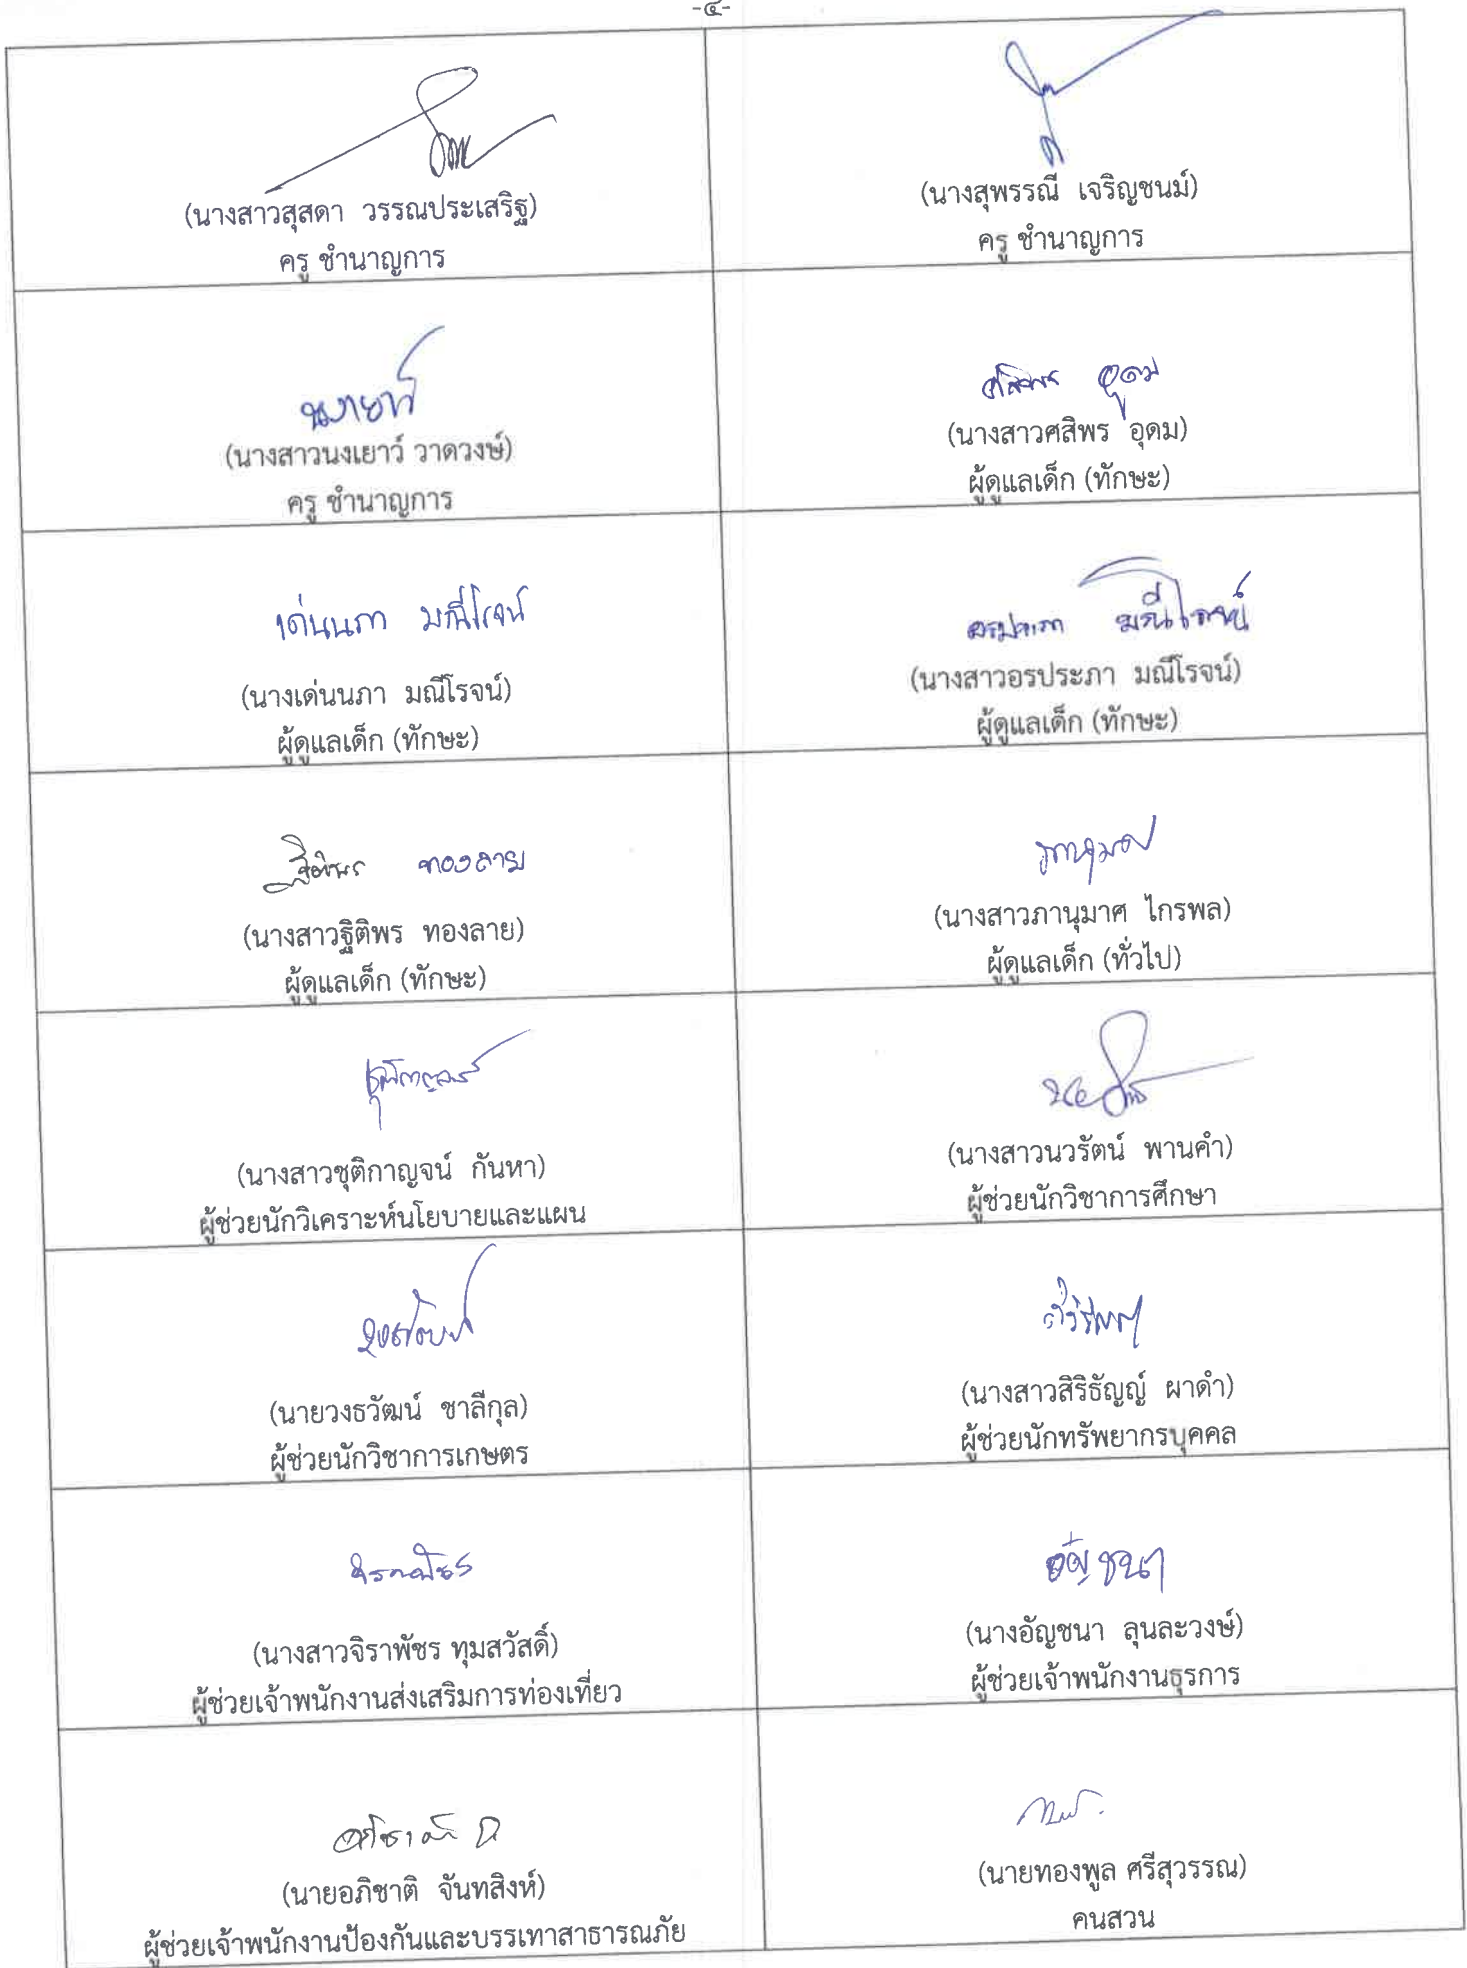 -๔-
(นางสาวสุสดา วรรณประเสริฐ)
ครู ชำนาญการ
(นางสุพรรณี เจริญชนม์)
ครู ชำนาญการ
นงเยาว์
(นางสาวนงเยาว์ วาดวงษ์)
ครู ชำนาญการ
ศสิพร อุดม
(นางสาวศสิพร อุดม)
ผู้ดูแลเด็ก (ทักษะ)
เด่นนภา มณีโรจน์
(นางเด่นนภา มณีโรจน์)
ผู้ดูแลเด็ก (ทักษะ)
อรประภา มณีโรจน์
(นางสาวอรประภา มณีโรจน์)
ผู้ดูแลเด็ก (ทักษะ)
ฐิติพร ทองลาย
(นางสาวฐิติพร ทองลาย)
ผู้ดูแลเด็ก (ทักษะ)
ภานุมาศ
(นางสาวภานุมาศ ไกรพล)
ผู้ดูแลเด็ก (ทั่วไป)
ชุติกาญจน์
(นางสาวชุติกาญจน์ กันหา)
ผู้ช่วยนักวิเคราะห์นโยบายและแผน
(นางสาวนวรัตน์ พานคำ)
ผู้ช่วยนักวิชาการศึกษา
(นายวงธวัฒน์ ชาลีกุล)
ผู้ช่วยนักวิชาการเกษตร
(นางสาวสิริธัญญ์ ผาดำ)
ผู้ช่วยนักทรัพยากรบุคคล
จิราพัชร
(นางสาวจิราพัชร ทุมสวัสดิ์)
ผู้ช่วยเจ้าพนักงานส่งเสริมการท่องเที่ยว
อัญชนา
(นางอัญชนา ลุนละวงษ์)
ผู้ช่วยเจ้าพนักงานธุรการ
อภิชาติ
(นายอภิชาติ จันทสิงห์)
ผู้ช่วยเจ้าพนักงานป้องกันและบรรเทาสาธารณภัย
(นายทองพูล ศรีสุวรรณ)
คนสวน